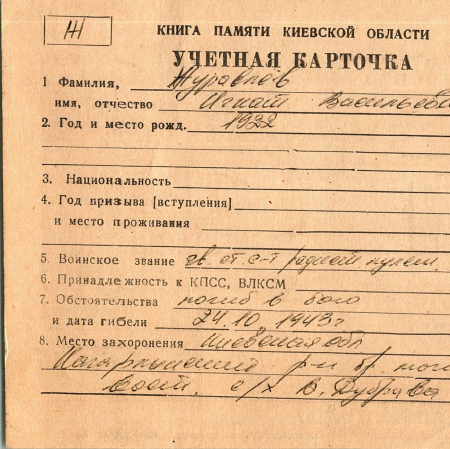 Ж
КНИГА ПАМЯТИ КИЕВСКОЙ ОБЛАСТИ
УЧЕТНАЯ КАРТОЧКА
1 Фамилия, Журавлёв
имя, отчество Игнат Васильеви
2. Год и место рожд. 1922
3. Национальность
4. Год призыва [вступления]
и место проживания
5. Воинское звание гв. ст. с-т
6. Принадлежность к КПСС, ВЛКСМ
7. Обстоятельства погиб в бою
и дата гибели 24.10.1943г
8. Место захоронения Киевская обл
р-н бр. мог
вост. с/х В. Дубрава